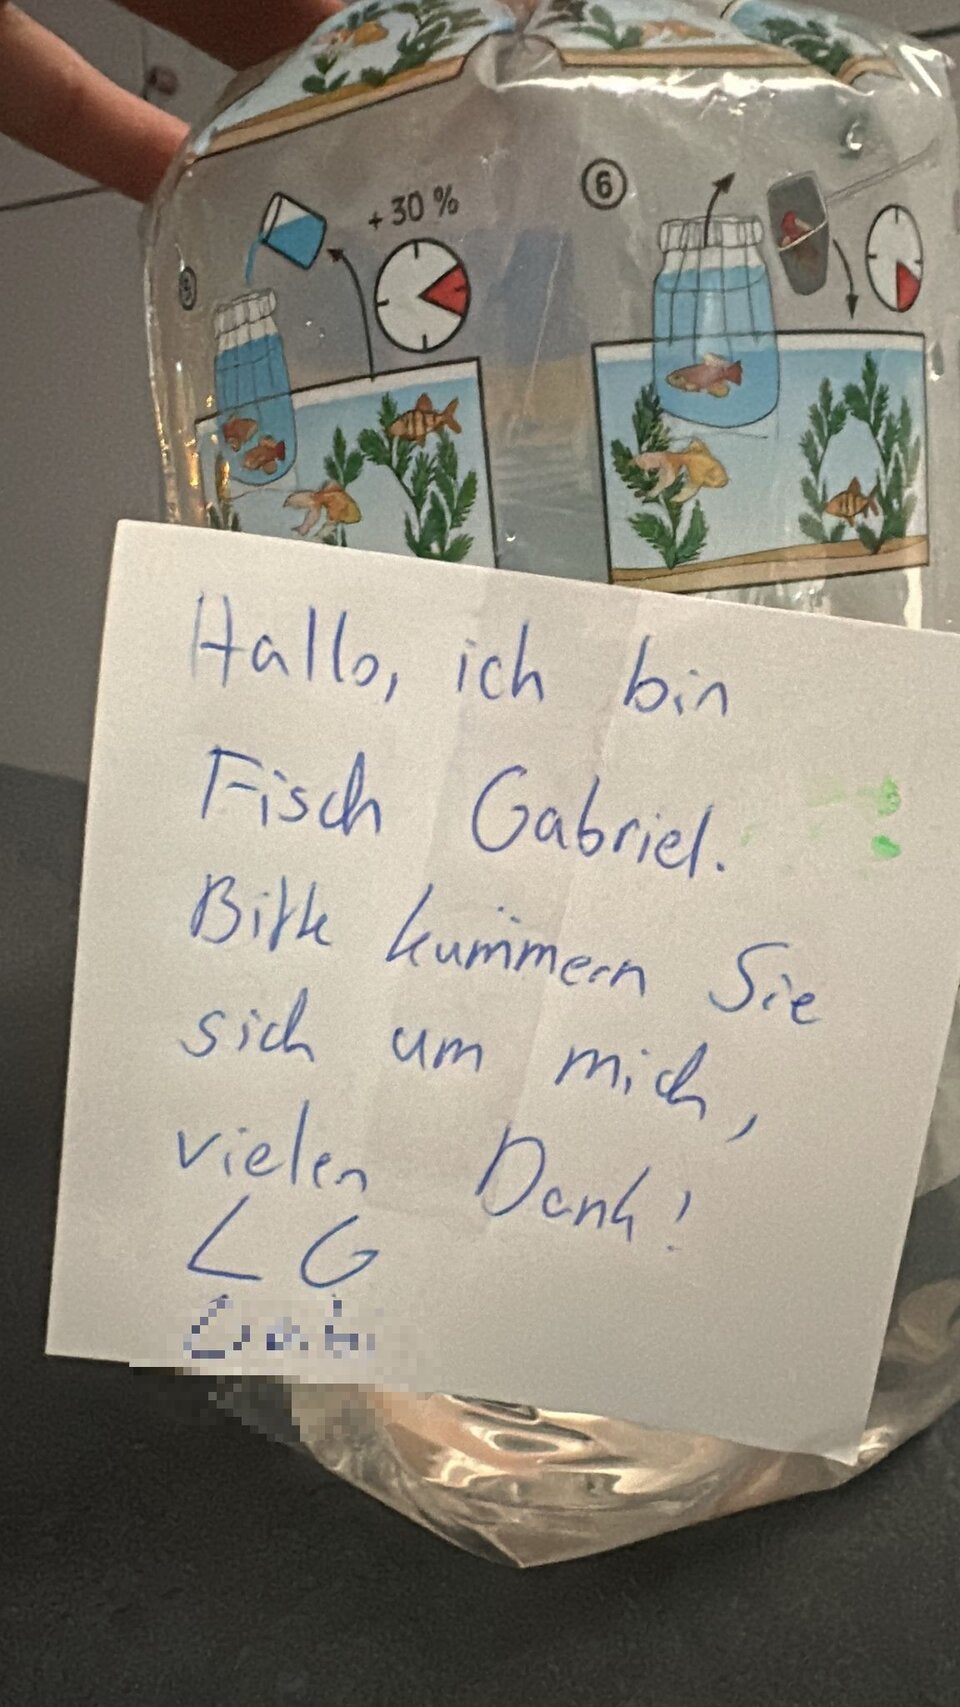 + 30 %
5
6
Hallo, ich bin
Fisch Gabriel.
Bitte kümmern Sie
sich um mich,
vielen Dank!
LG